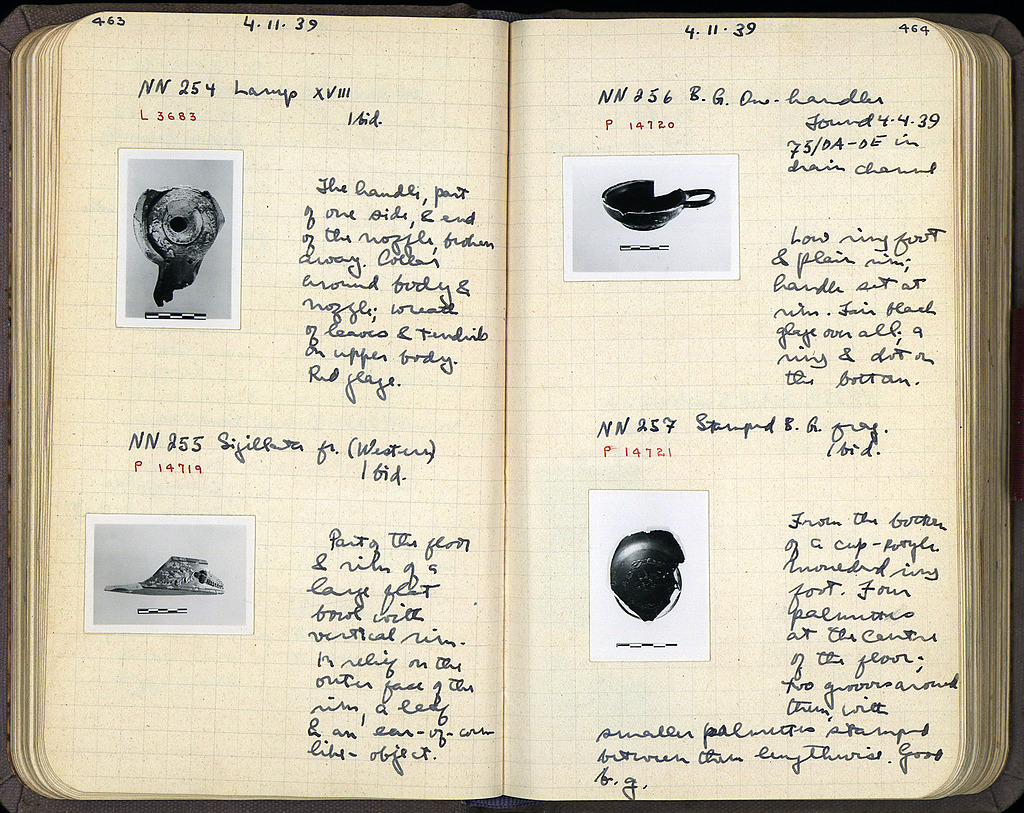 463
4·11·39
NN 254 Lamp XVIII
L 3683
Ibid.
The handle, part
of one side, & end
of the nozzle, broken
away. Collar
around body &
nozzle; wreath
of leaves & tendrils
on upper body.
Red glaze.
NN 255 Sigillata fr. (Western)
P 14719
Ibid.
Part of the floor
& rim of a
large flat
bowl with
vertical rim.
In relief on the
outer face of the
rim, a leaf
& an ear-of-corn
like-object.
4·11·39
464
NN 256 B. G. One-handler
P 14720
Found 4·4·39
75/ΟΑ-ΟΕ in
drain channel
Low ring foot
& plain rim;
handle set at
rim. Fair black
glaze over all; a
ring & dot on
the bottom.
NN 257 Stamped B. G. frag.
P 14721
Ibid.
From the bottom
of a cup-kotyle
moulded ring
foot. Four
palmettes
at the centre
of the floor;
two grooves around
them, with
smaller palmettes stamped
between them lengthwise. Good
b. g.